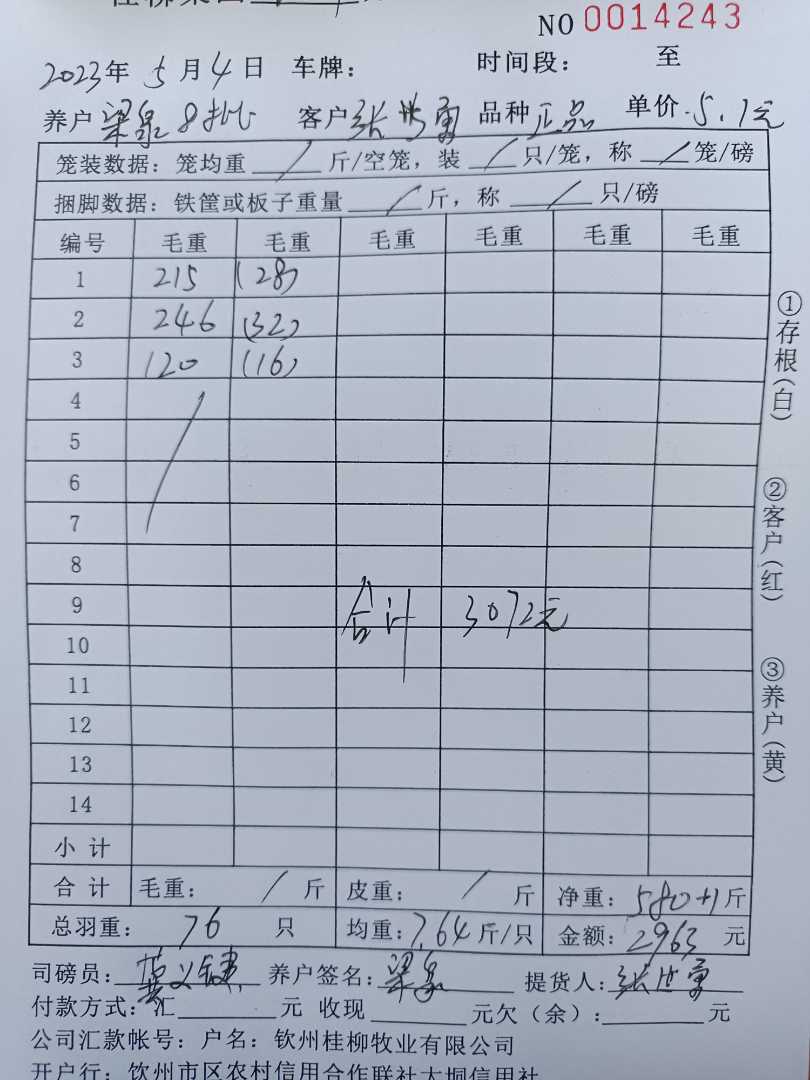 NO 0014243
2023年 5 月 4 日 车牌： 时间段： 至
养户 梁泉8批 客户 张世勇 品种 正品 单价 5.1元
笼装数据：笼均重 / 斤/空笼，装 / 只/笼，称 / 笼/磅
捆脚数据：铁筐或板子重量 / 斤，称 / 只/磅
编号 毛重 毛重 毛重 毛重 毛重 毛重
1 215 (28)
2 246 (32)
3 120 (16)
4
5
6
7
8
9 合计 3072元
10
11
12
13
14
小计
合计 毛重： / 斤 皮重： / 斤 净重：580+1斤
总羽重： 76 只 均重：7.64斤/只 金额：2963 元
司磅员： 养户签名：梁泉 提货人：张世勇
付款方式：汇 元 收现 元欠（余）： 元
公司汇款帐号：户名：钦州桂柳牧业有限公司
开户行：钦州市区农村信用合作联社大垌信用社
①存根（白）
②客户（红）
③养户（黄）